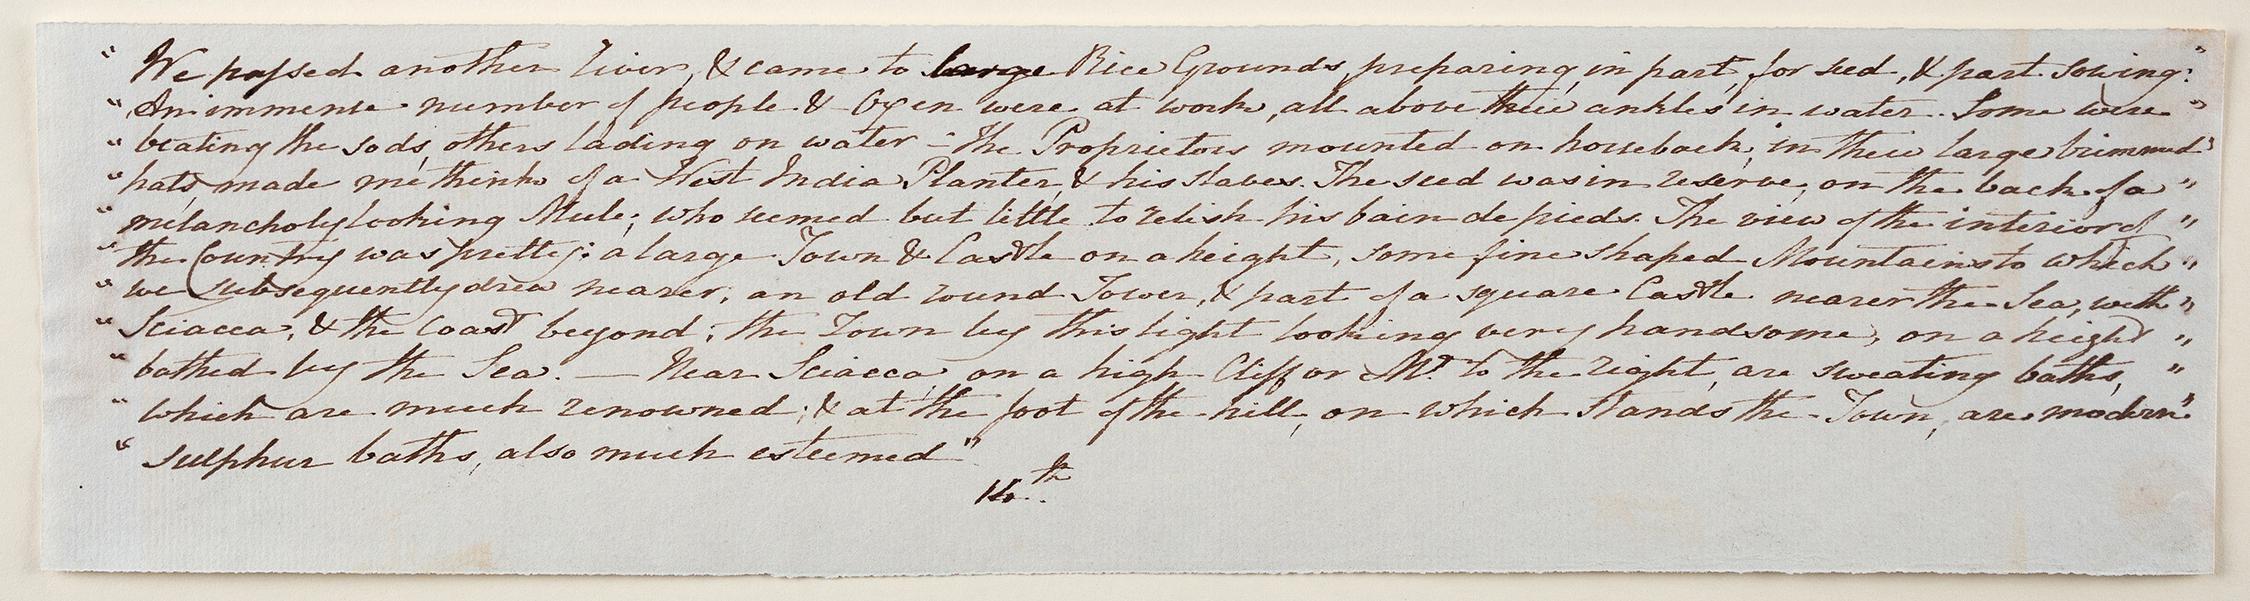 " We passed another river, & came to large Rice Grounds, preparing, in part, for seed, & part sowing: "
" An immense number of people & Oxen were at work, all above their ankles in water. Some were "
" beating the sods, others lading on water – the Proprietors mounted on horseback, in their large brimmed "
" hats, made me think of a West India Planter, & his slaves. The seed was in reserve, on the back of a "
" melancholy looking Mule, who seemed but little to relish his bain de pieds. The view of the interior of "
" the Country was pretty; a large Town & Castle on a height, some fine shaped Mountains to which "
" we subsequently drew nearer, an old round Tower, & part of a square Castle nearer the Sea, with "
" Sciacca, & the Coast beyond; the Town by this light looking very handsome, on a height "
" bathed by the Sea. — Near Sciacca, on a high Cliff or Mt. to the right, are sweating baths, "
" which are much renowned; & at the foot of the hill, on which stands the Town, are modern "
" sulphur baths, also much esteemed "
14th.